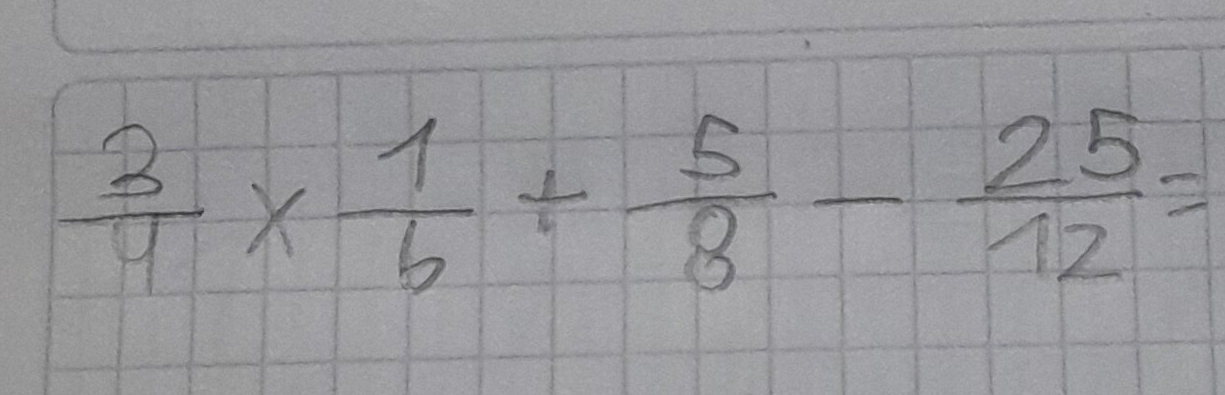 3/4 × 1/6 + 5/8 − 25/12 =